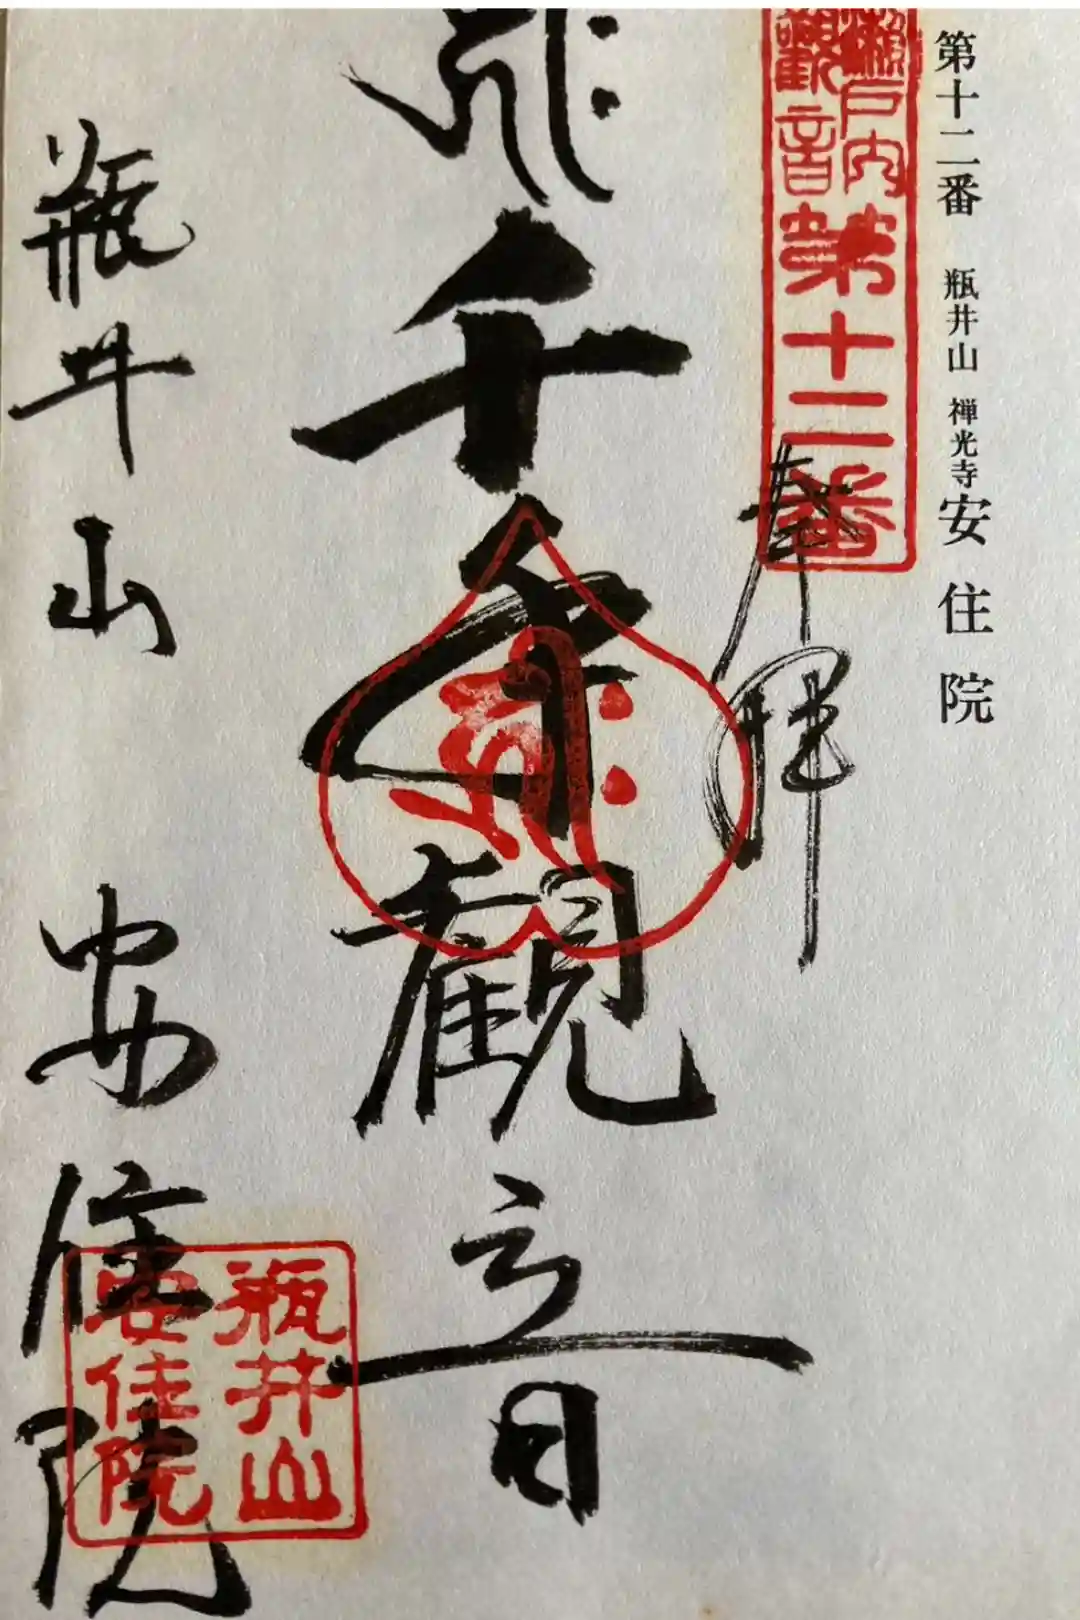 第十二番 瓶井山 禅光寺 安住院
瀬戸内
觀音
第十二番
奉拝
千手観音
瓶井山 安住院
瓶井山
安住院